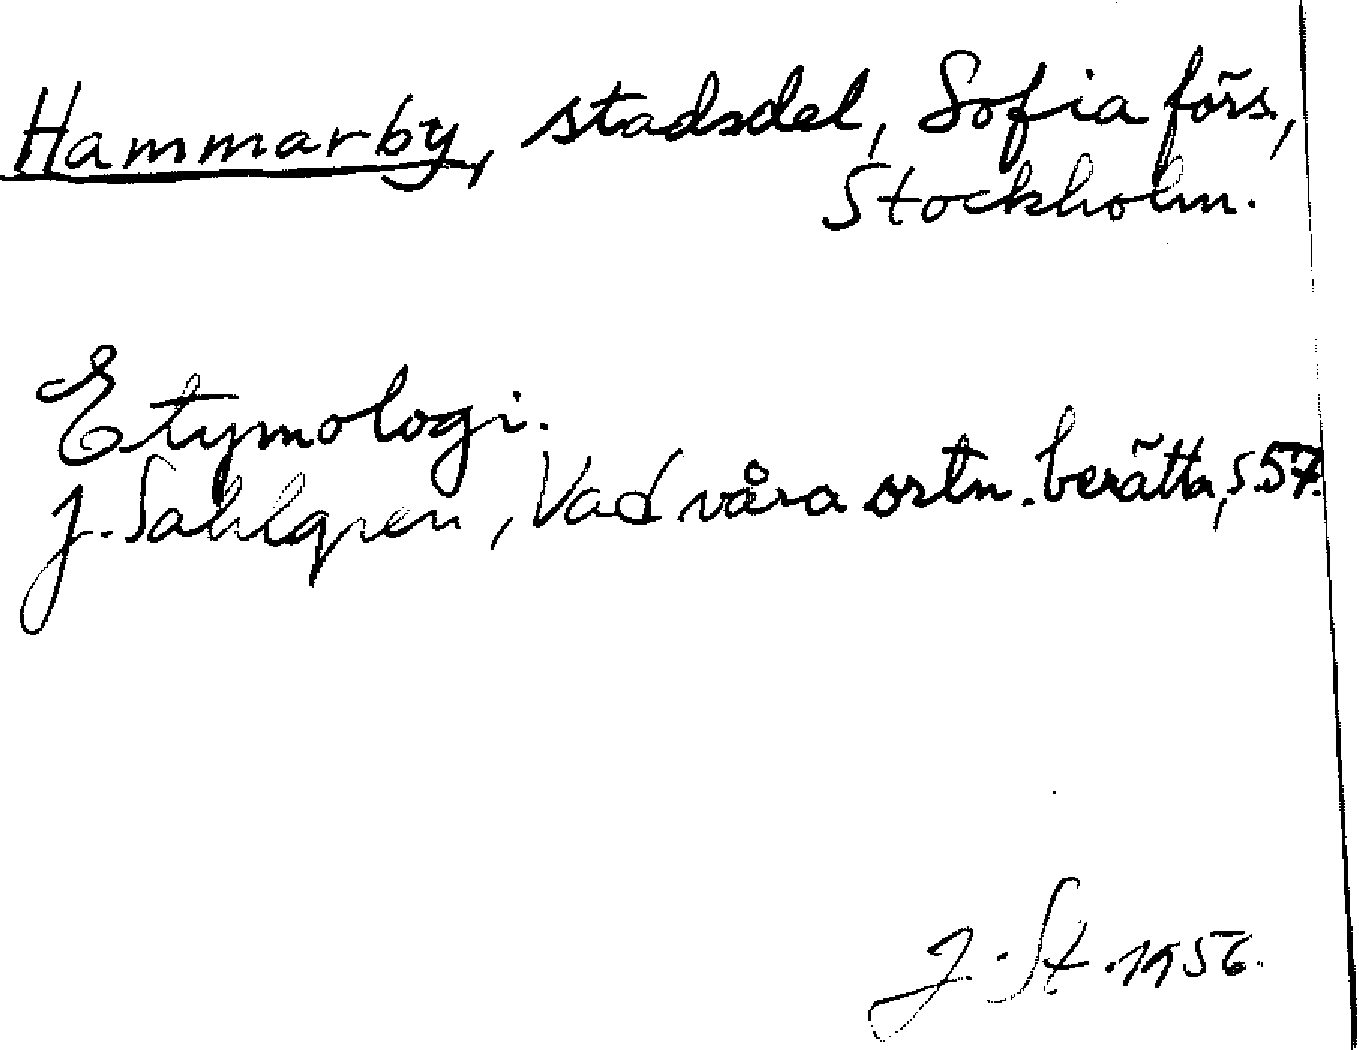 Hammarby, stadsdel, Sofia förs.,
Stockholm.
Etymologi.
J. Sahlgren, Vad våra ortn. berätta, s. 57.
J. St. 1956.